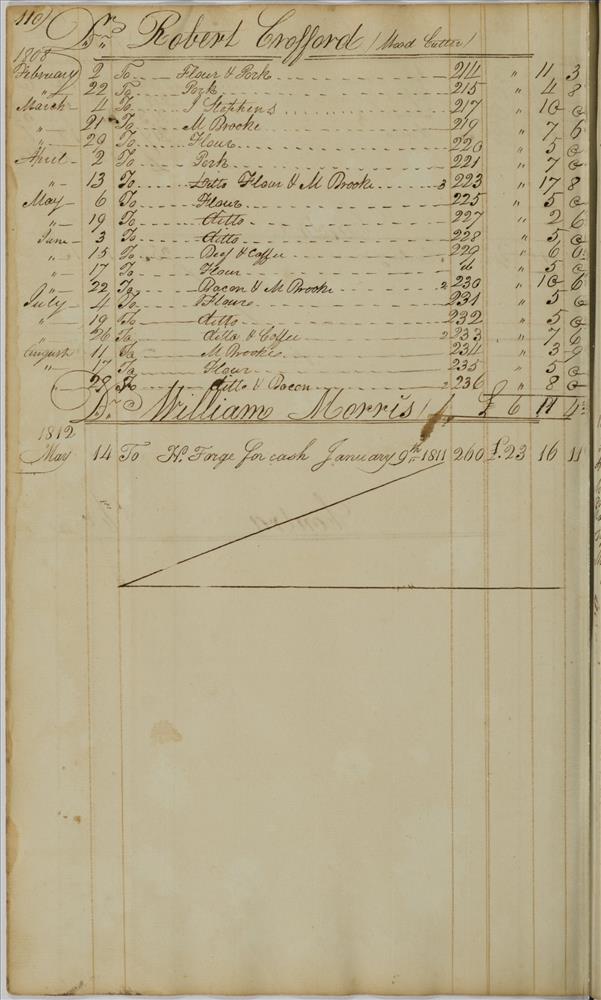 110)
Dr Robert Crofford (Wood Cutter)
1808
February 2 To Flour & Pork 214 " 11 3
" 22 To Pork 215 " 4 8
March 4 To J Stephens 217 " 10 0
" 21 To M Brooke 219 " 7 6
" 29 To Flour 220 " 5 0
April 2 To Pork 221 " 7 0
" 13 To Ditto Flour & M Brooke 3 223 " 17 8
May 6 To Flour 225 " 5 0
" 19 To ditto 227 " 2 6
June 3 To ditto 228 " 5 0
" 15 To Beef & Coffee 229 " 6 0
" 17 To Flour " " 5 0
" 22 To Bacon & M Brooke 2 230 " 10 6
July 4 To Flour 231 " 5 0
" 19 To ditto 232 " 5 0
" 26 To ditto & Coffee 2 233 " 7 6
August 11 To M Brooke 234 " 3 9
" 17 To Flour 235 " 5 0
" 29 To ditto & Bacon 2 236 " 8 0
Dr William Morris £ 6 11 4
1812
May 14 To H. Forge for cash January 9th 1811 260 £ 23 16 11